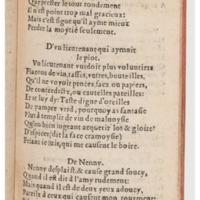 Que prester le tout rondement
En est point trop mal gracieux:
Mais c'est signe qu'il ayme mieux
Perdre la moytié seulement.
D'vn lieutenant qui aymoit
le piot.
Vn lieutenant vuidoit plus voluntiers
Flacons de vin, tasses, verres, bouteilles,
Qu'il ne voyoit pences, sacs ou papiers,
De contredictz, ou cautelles pareilles:
Et ie luy dy: Teste digne d'oreilles
De pampre verd, pourquoy as fantasie
Plus à t'emplir de vin de maluoysie
Qu'en bien iugeant acquerir los & gloire?
D'espices (dit la face cramoysie)
Friant ie suis, qui me causent le boire.
De Nenny.
Nenny desplaist, & cause grand soucy,
Quand il est dit à l'amy rudement:
Mais quand il est de deux yeux adoucy,
à ceux qui causent mon tourment: